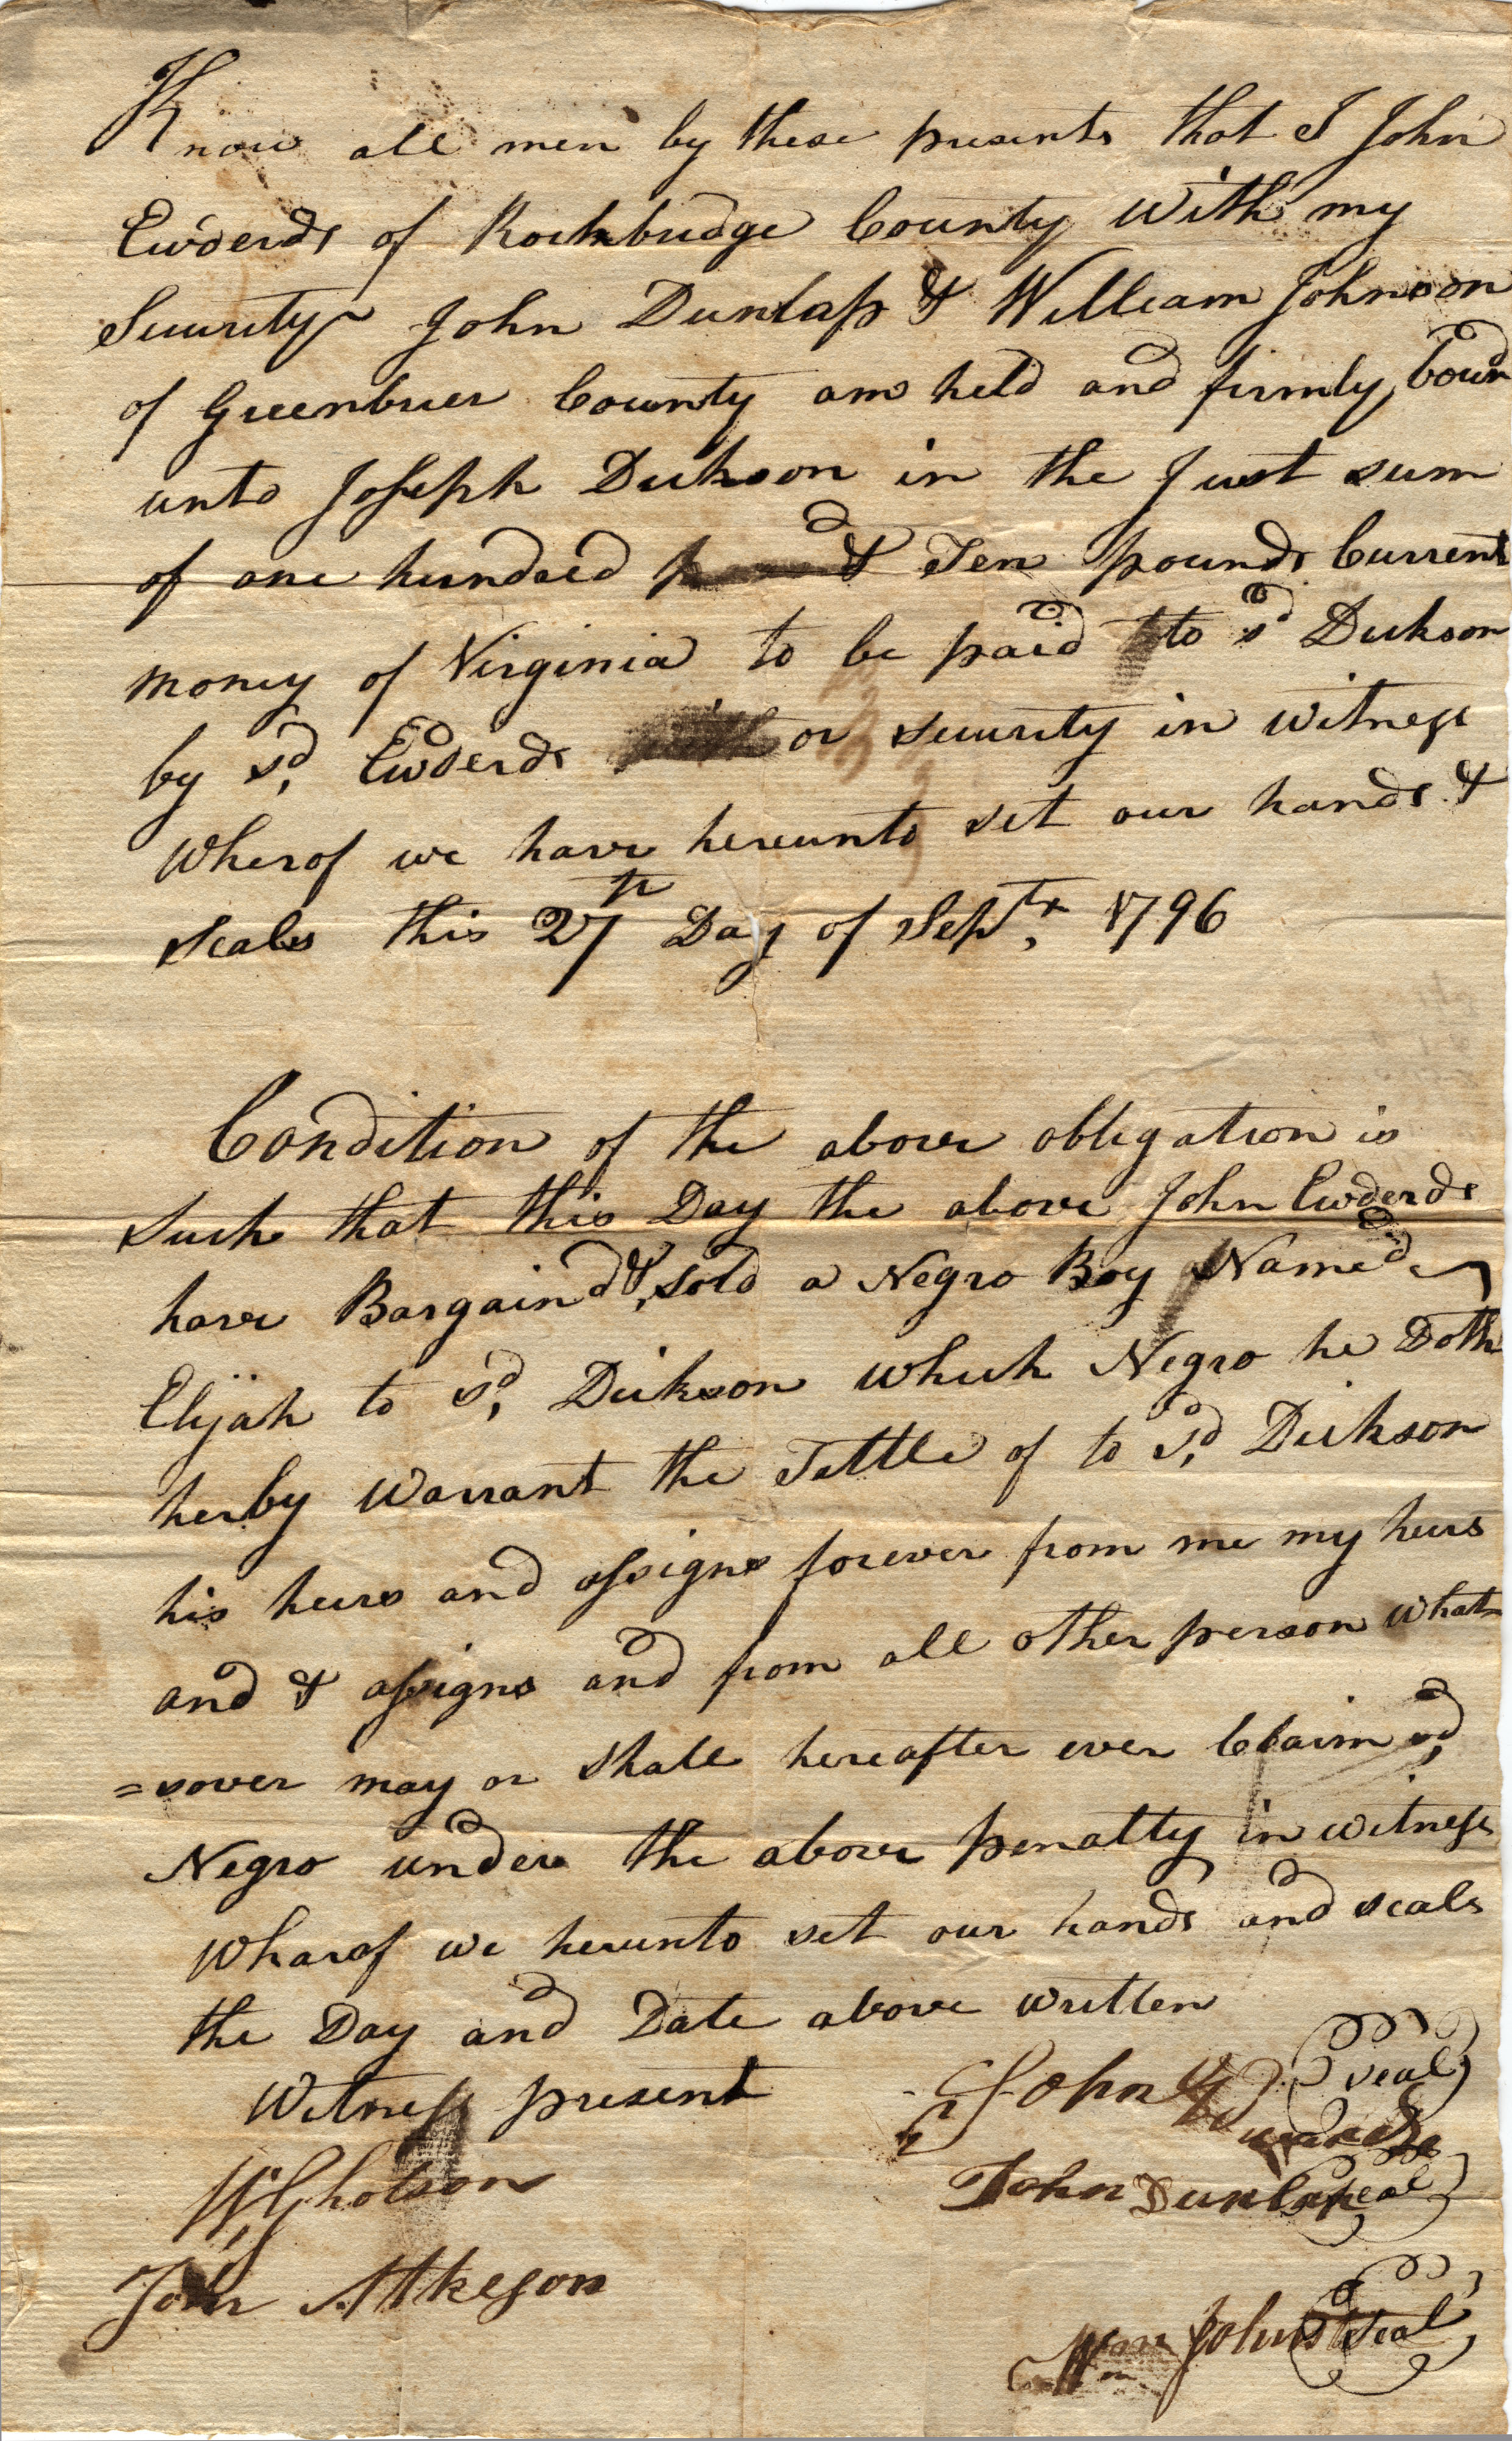 Know all men by these presents that I John
Ewderds of Rockbridge County With my
Security John Dunlap & William Johnson
of Greenbrier County am held and firmly bound
unto Joseph Dickson in the Just sum
of one hundred & Ten pounds Current
money of Virginia to be paid to sd Dickson
by sd, Ewderds or security in witness
Wherof we have hereunto set our hands &
seals this 27th Day of Septr, 1796
Condition of the above obligation is
Such that this Day the above John Ewderds
have Bargaind &, sold a Negro Boy Named
Elijah to sd, Dickson which Negro he Doth
herby Warrant the Tittle of to Sd, Dickson
his heirs and assigns forever from me my heirs
and & assigns and from all other person what
=sover may or shall hereafter ever Claim sd,
Negro under the above penalty in witness
Wharof we herunto set our hands and seals
the Day and Date above written
Witness present
John Edwards seal
W. Gholson
John Dunlap seal
John Atkeson
Wm Johnston seal